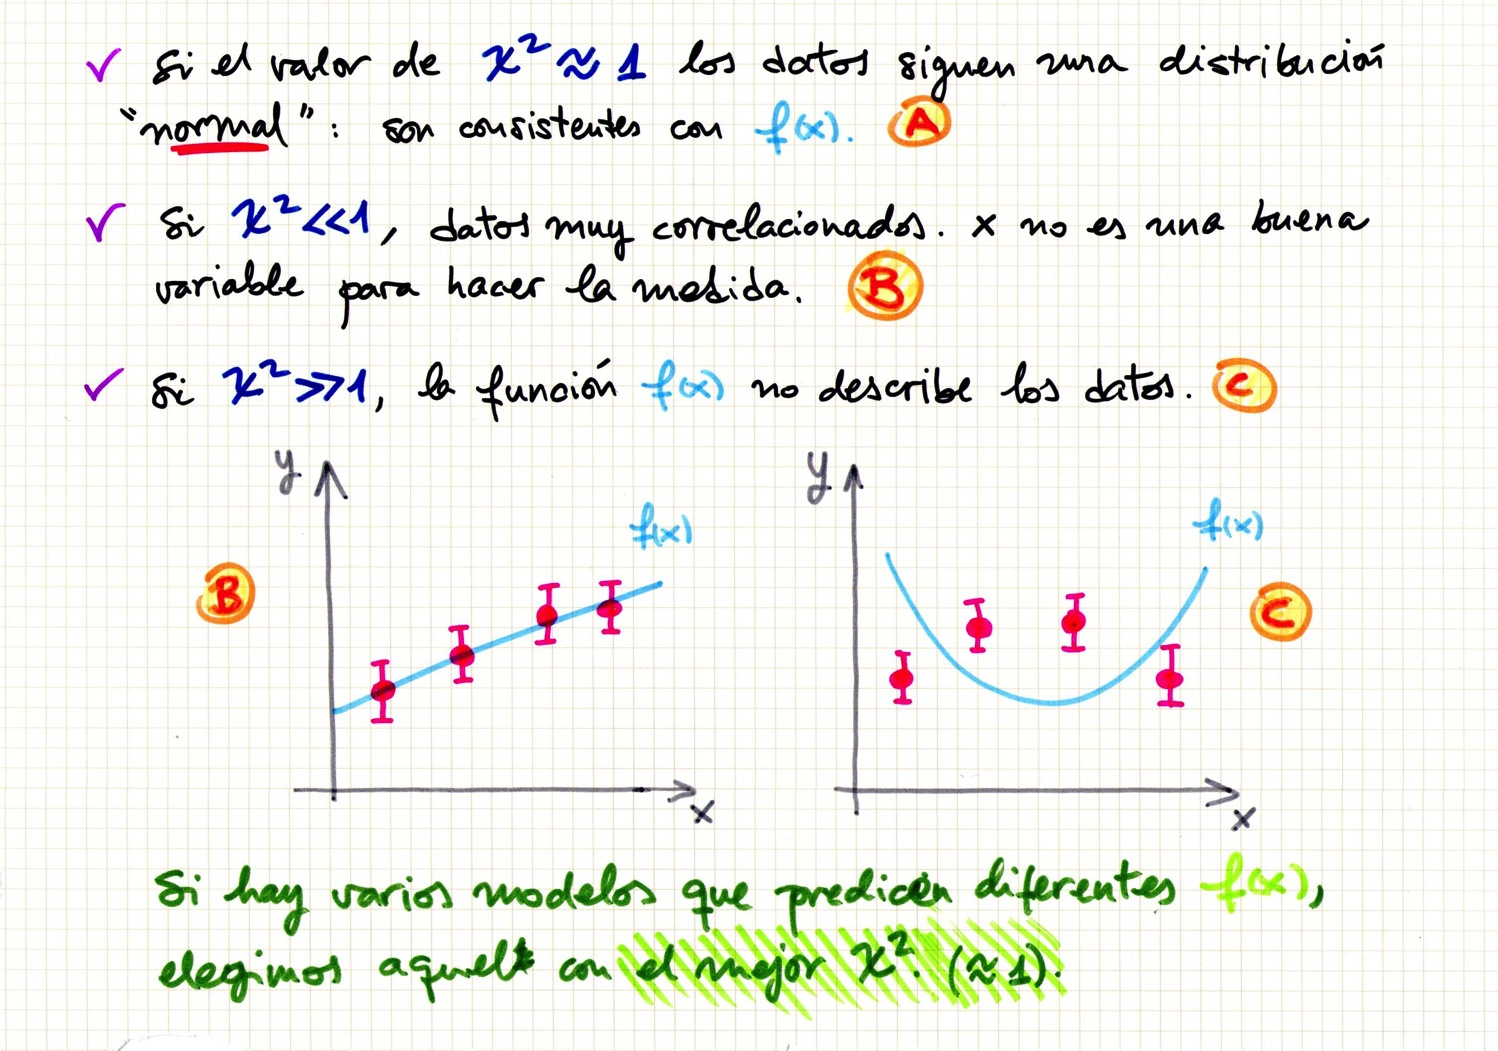 ✓ Si el valor de χ² ≈ 1 los datos siguen una distribución
"normal": son consistentes con f(x). A
✓ Si χ² << 1, datos muy correlacionados. x no es una buena
variable para hacer la medida. B
✓ Si χ² >> 1, la función f(x) no describe los datos. C
y
f(x)
B
x
y
f(x)
C
x
Si hay varios modelos que predicen diferentes f(x),
elegimos aquel con el mejor χ². (≈ 1).